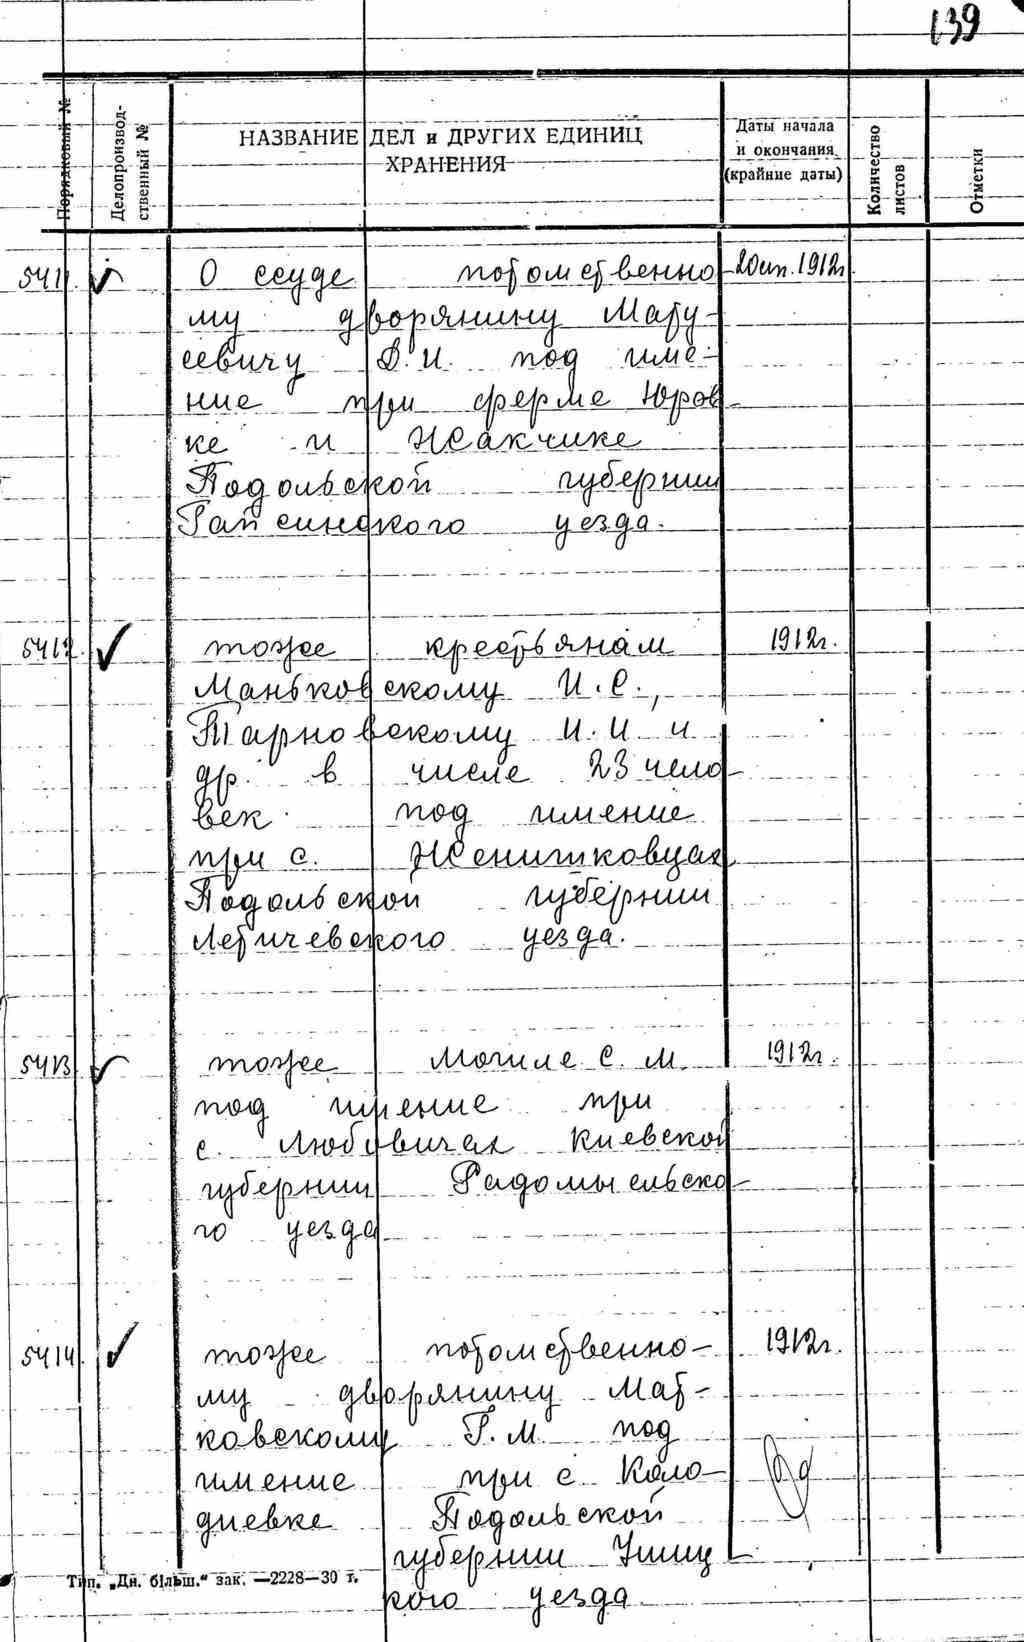 139
Порядковый №
Делопроизвод-
ственный №
НАЗВАНИЕ ДЕЛ и ДРУГИХ ЕДИНИЦ
ХРАНЕНИЯ
Даты начала
и окончания
(крайние даты)
Количество
листов
Отметки
5411. О ссуде потомственно 1912г.
му дворянину Мату-
севичу И. под име-
ние при ферме Юров
ке и Жакчике
Подольской губернии
Гайсинского уезда.
5412. тоже крестьянам 1912г.
Маньковскому И.С.,
Тарновскому И.И и
др. в числе 23 чело
век под имение
при с. Женишковцах
Подольской губернии
Летичевского уезда.
5413 тоже Могиле С.М. 1912г.
под имение при
с. Любовичах Киевской
губернии Радомысльско
го уезда
5414. тоже потомственно- 1912г.
му дворянину Мат-
ковскому Г.М. под
имение при с Коло-
диевке Подольской
губернии Ушиц
кого уезда
Тип. „Дн. більш." зак. —2228—30 г.